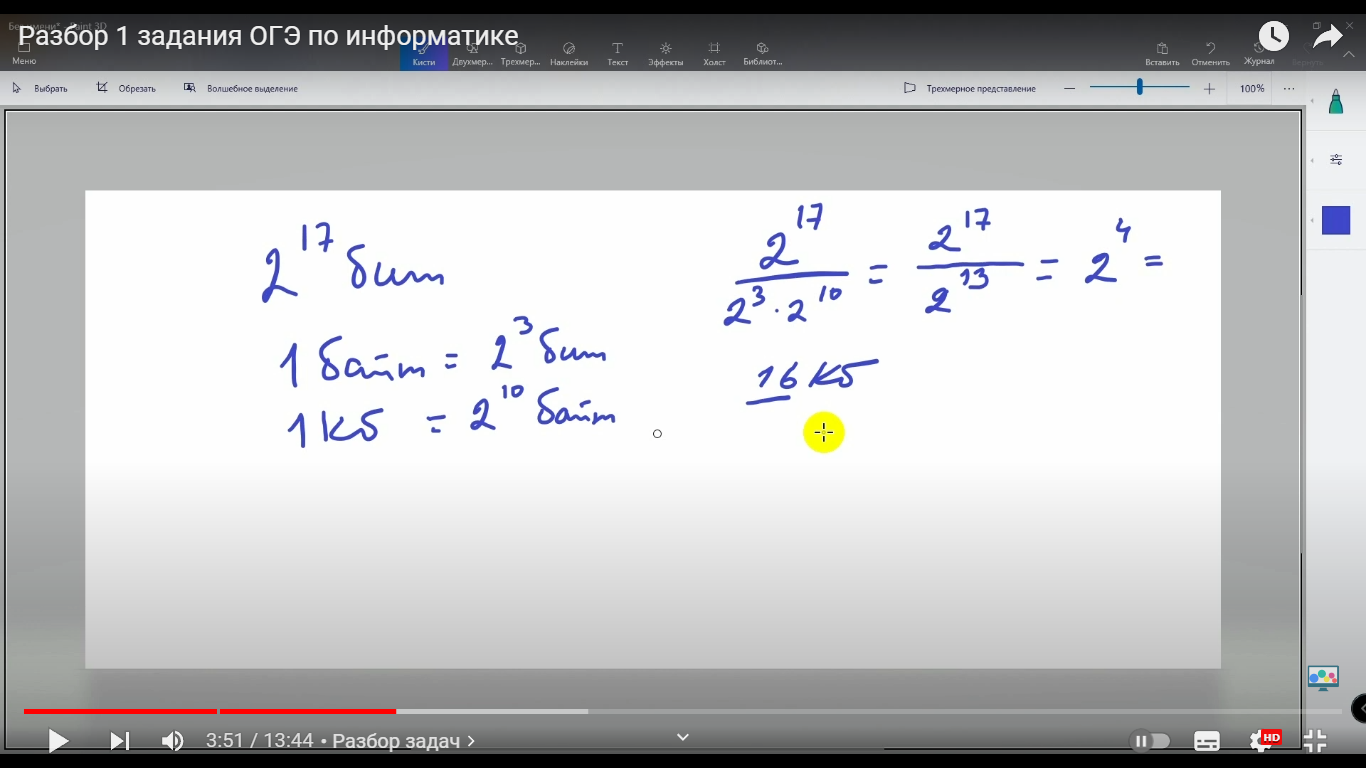 Без имени* - Paint 3D
Разбор 1 задания ОГЭ по информатике
Меню
Кисти Двухмер... Трехмер... Наклейки Текст Эффекты Холст Библиот...
Вставить Отменить Журнал Вернуть
Выбрать Обрезать Волшебное выделение
Трехмерное представление 100%
2^17 бит
1 байт = 2^3 бит
1 Кб = 2^10 байт
2^17 / (2^3 · 2^10) = 2^17 / 2^13 = 2^4 =
16 Кб
3:51 / 13:44 • Разбор задач
HD